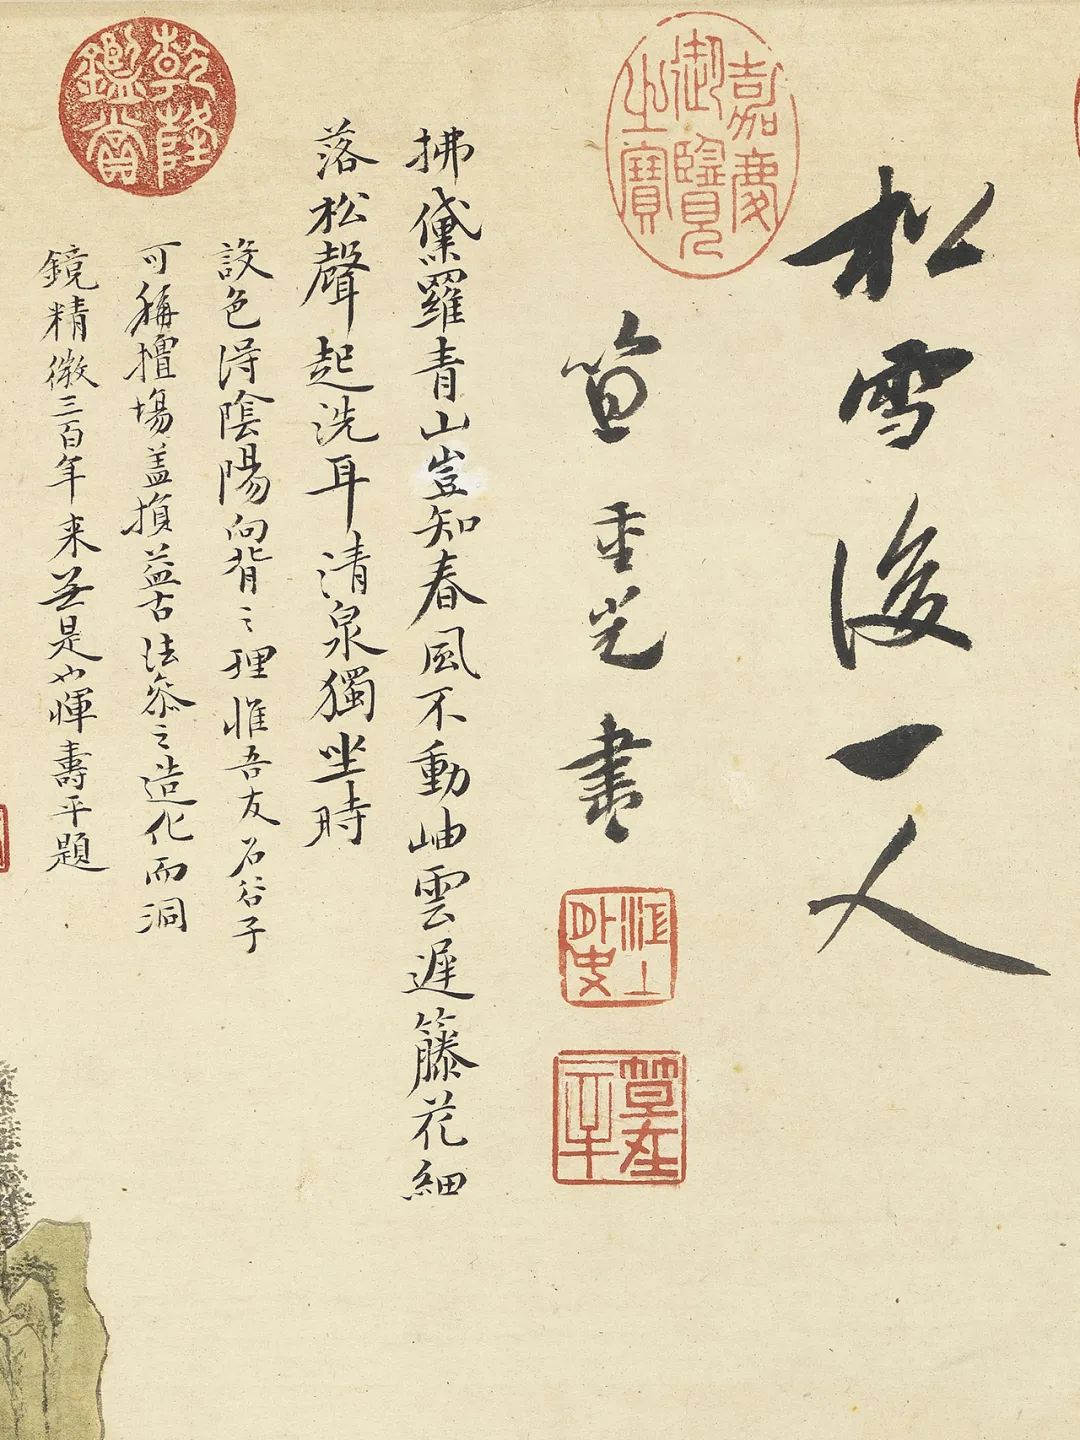 松雪後一人
嘉慶御覽之寶
笪重光書
江上外史
拂黛羅青山豈知春風不動岫雲遲籐花細
落松聲起洗耳清泉獨坐時
設色得陰陽向背之理惟吾友石谷子
可稱擅場盖損益古法參之造化而洞
鏡精微三百年来無是也惲壽平題
乾隆鑑賞